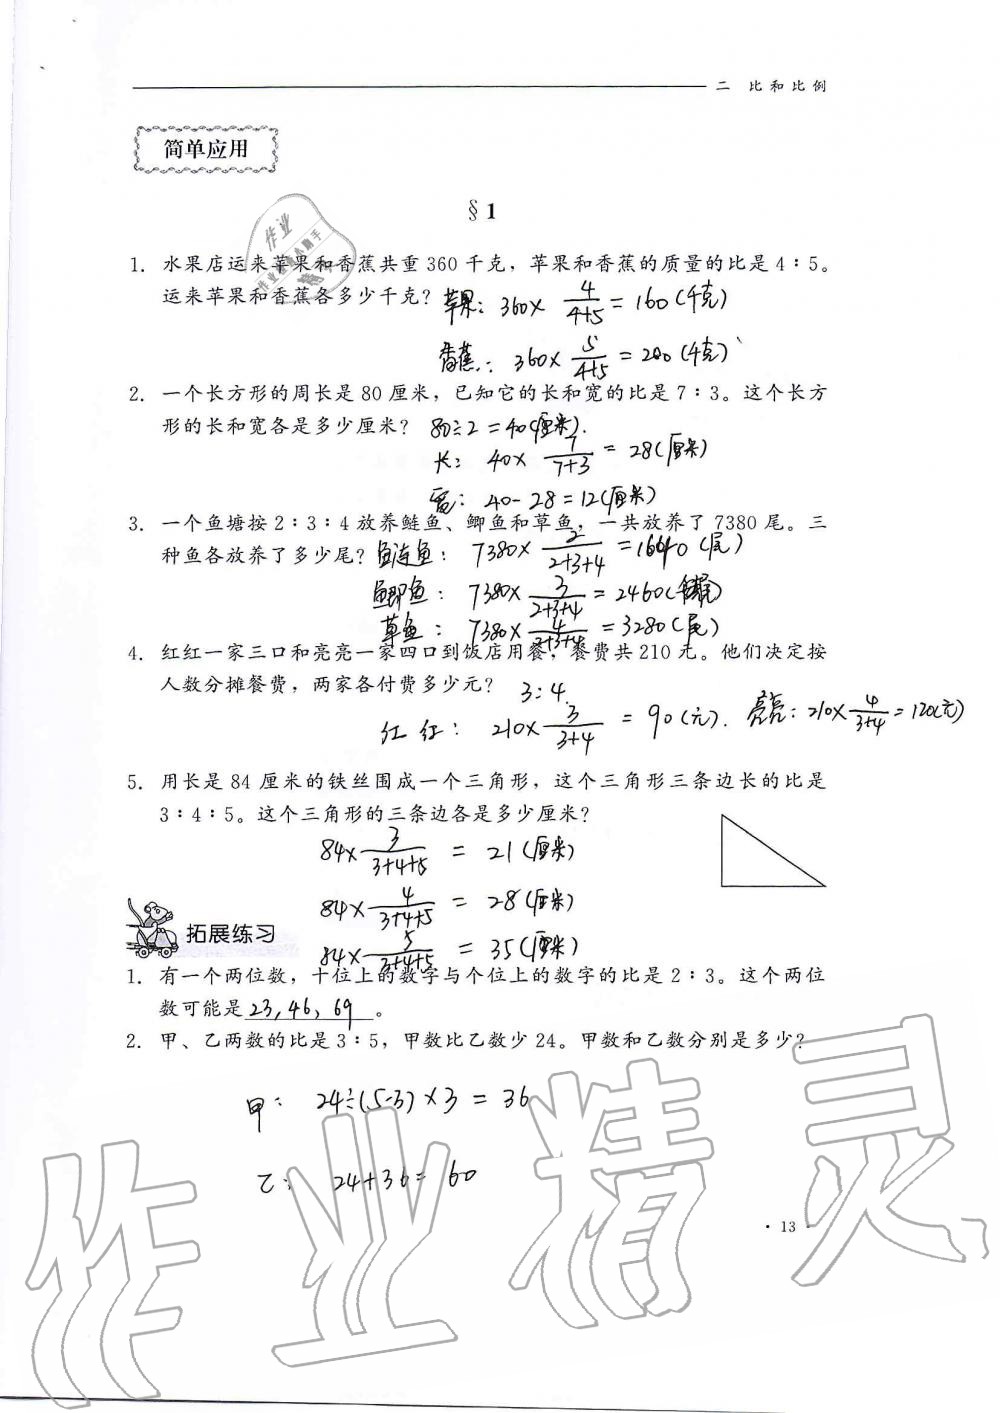 二 比和比例
简单应用
§1
1. 水果店运来苹果和香蕉共重360千克，苹果和香蕉的质量的比是4∶5。
运来苹果和香蕉各多少千克？ 苹果：360×4/(4+5)=160(千克)
香蕉：360×5/(4+5)=200(千克)
2. 一个长方形的周长是80厘米，已知它的长和宽的比是7∶3。这个长方
形的长和宽各是多少厘米？ 80÷2=40(厘米).
长：40×7/(7+3)=28(厘米)
宽：40-28=12(厘米)
3. 一个鱼塘按2∶3∶4放养鲢鱼、鲫鱼和草鱼，一共放养了7380尾。三
种鱼各放养了多少尾？ 鲢鱼：7380×2/(2+3+4)=1640(尾)
鲫鱼：7380×3/(2+3+4)=2460(尾)
草鱼：7380×4/(2+3+4)=3280(尾)
4. 红红一家三口和亮亮一家四口到饭店用餐，餐费共210元。他们决定按
人数分摊餐费，两家各付费多少元？ 3:4.
红红：210×3/(3+4)=90(元). 亮亮：210×4/(3+4)=120(元)
5. 用长是84厘米的铁丝围成一个三角形，这个三角形三条边长的比是
3∶4∶5。这个三角形的三条边各是多少厘米？
84×3/(3+4+5)=21(厘米)
84×4/(3+4+5)=28(厘米)
84×5/(3+4+5)=35(厘米)
拓展练习
1. 有一个两位数，十位上的数字与个位上的数字的比是2∶3。这个两位
数可能是23,46,69。
2. 甲、乙两数的比是3∶5，甲数比乙数少24。甲数和乙数分别是多少？
甲：24÷(5-3)×3=36
乙：24+36=60
·13·
作业精灵